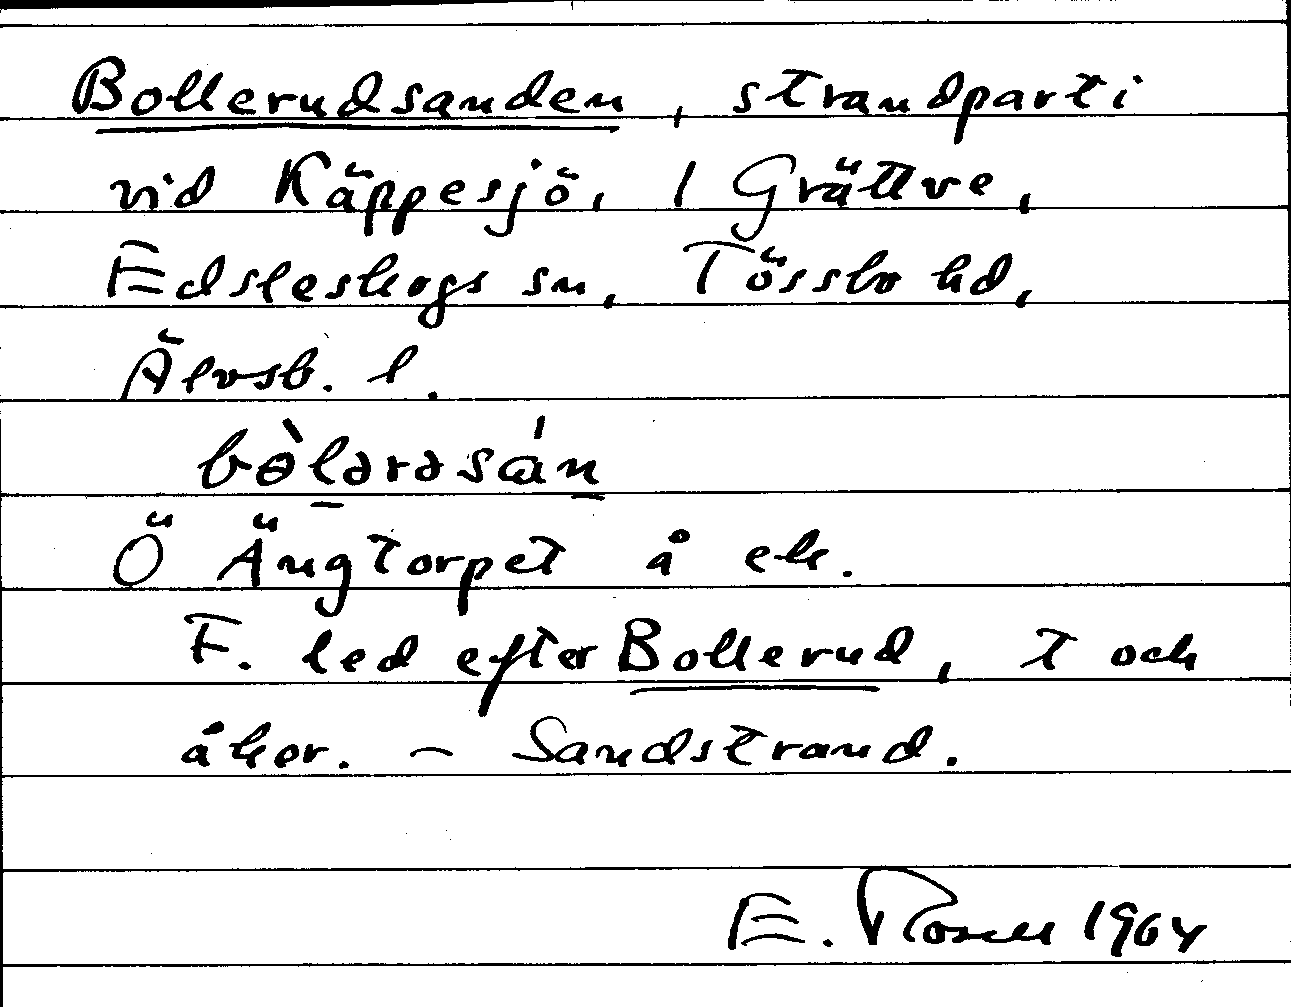 Bollerudsanden, strandparti
vid Käppesjö, 1 Grättve,
Edsleskogs sn, Tössbo hd,
Älvsb. l.
bòlərəsán
Ö Ängtorpet å ek.
F. led efter Bollerud, t och
åker. – Sandstrand.
E. Rosell 1964